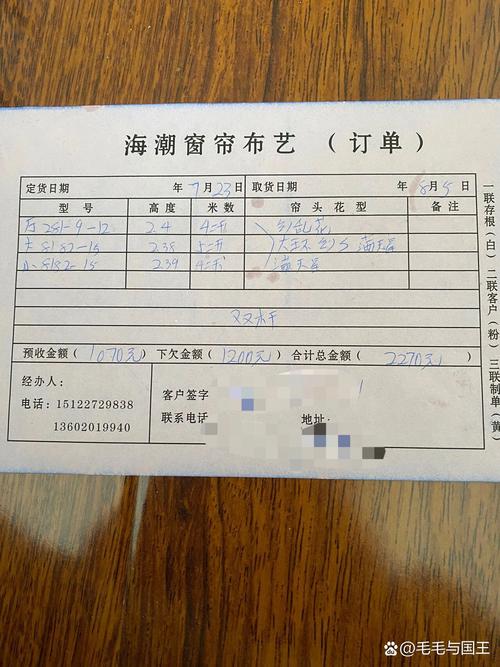 海潮窗帘布艺 （订单）
定货日期 年 7月23日 取货日期 年 8月5日
型号 高度 米数 帘头花型 备注
281-9-12 2.4
大 8182-15 2.38 满天星
小 8182-15 2.39 满天星
双杆
预收金额（1070元）下欠金额（1200元）合计总金额（2270元）
经办人：
电话：15122729838
13602019940
客户签字
联系电话
地址：
一联存根（白）二联客户（粉）三联制单（黄）
@毛毛与国王